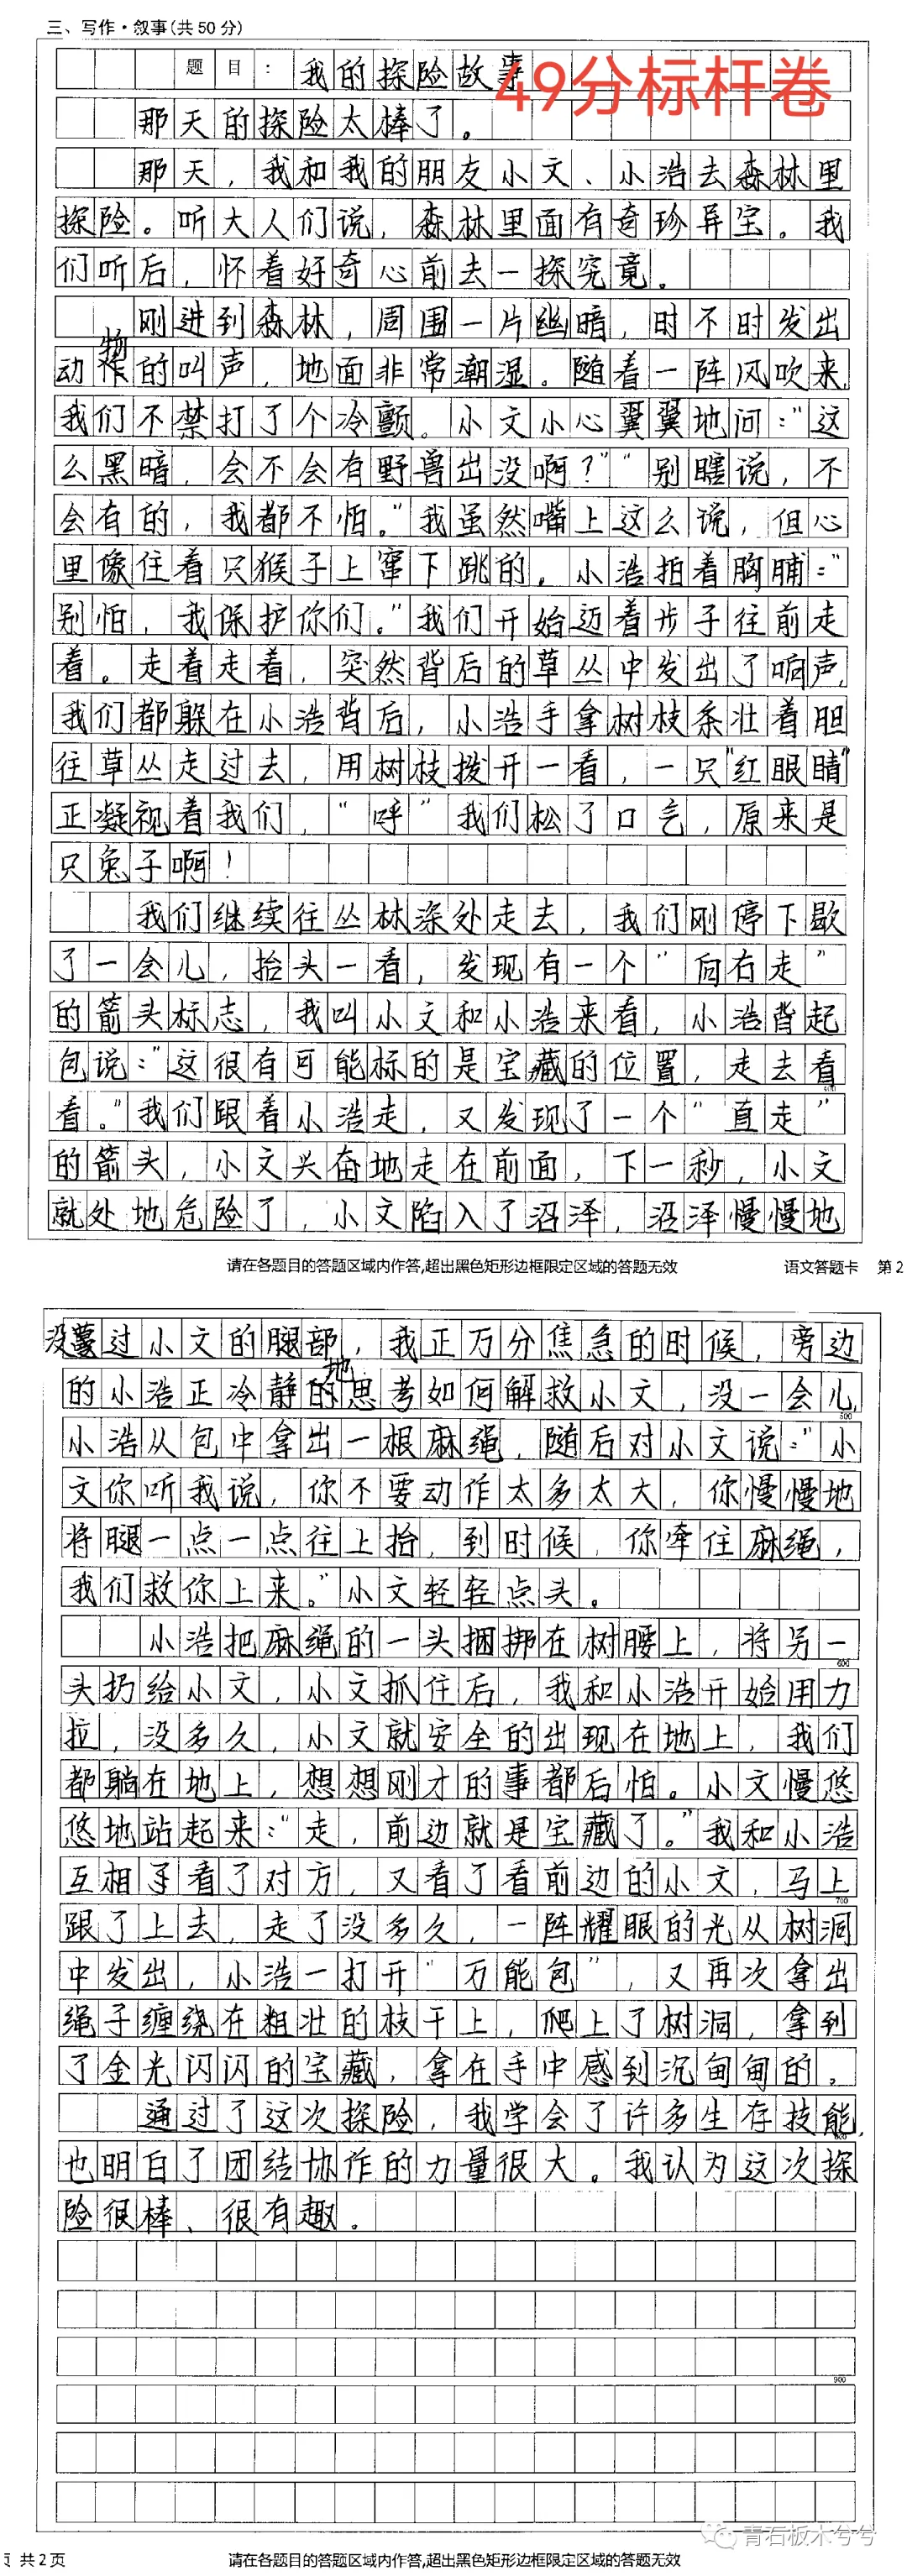 三、写作·叙事(共50分)
题目：我的探险故事
49分标杆卷
那天的探险太棒了。
那天，我和我的朋友小文、小浩去森林里
探险。听大人们说，森林里面有奇珍异宝。我
们听后，怀着好奇心前去一探究竟。
刚进到森林，周围一片幽暗，时不时发出
动物的叫声，地面非常潮湿。随着一阵风吹来，
我们不禁打了个冷颤。小文小心翼翼地问："这
么黑暗，会不会有野兽出没啊？""别瞎说，不
会有的，我都不怕。"我虽然嘴上这么说，但心
里像住着只猴子上窜下跳的。小浩拍着胸脯："
别怕，我保护你们。"我们开始迈着步子往前走
着。走着走着，突然背后的草丛中发出了响声，
我们都躲在小浩背后，小浩手拿树枝条壮着胆
往草丛走过去，用树枝拨开一看，一只"红眼睛"
正凝视着我们，"呼"我们松了口气，原来是
只兔子啊！
我们继续往丛林深处走去，我们刚停下歇
了一会儿，抬头一看，发现有一个"向右走"
的箭头标志，我叫小文和小浩来看，小浩背起
包说："这很有可能标的是宝藏的位置，走去看
看。"我们跟着小浩走，又发现了一个"直走"
的箭头，小文兴奋地走在前面，下一秒，小文
就处地危险了，小文陷入了沼泽，沼泽慢慢地
请在各题目的答题区域内作答,超出黑色矩形边框限定区域的答题无效
语文答题卡 第2
没过小文的腿部，我正万分焦急的时候，旁边
的小浩正冷静地思考如何解救小文，没一会儿，
500
小浩从包中拿出一根麻绳，随后对小文说："小
文你听我说，你不要动作太多太大，你慢慢地
将腿一点一点往上抬，到时候，你牵住麻绳，
我们救你上来。"小文轻轻点头。
小浩把麻绳的一头捆绑在树腰上，将另一
600
头扔给小文，小文抓住后，我和小浩开始用力
拉，没多久，小文就安全的出现在地上，我们
都躺在地上，想想刚才的事都后怕。小文慢悠
悠地站起来："走，前边就是宝藏了。"我和小浩
互相看了对方，又看了看前边的小文，马上
700
跟了上去，走了没多久，一阵耀眼的光从树洞
中发出，小浩一打开"万能包"，又再次拿出
绳子缠绕在粗壮的枝干上，爬上了树洞，拿到
了金光闪闪的宝藏，拿在手中感到沉甸甸的。
通过了这次探险，我学会了许多生存技能，
800
也明白了团结协作的力量很大。我认为这次探
险很棒、很有趣。
900
青石板木兮兮
页 共2页
请在各题目的答题区域内作答,超出黑色矩形边框限定区域的答题无效